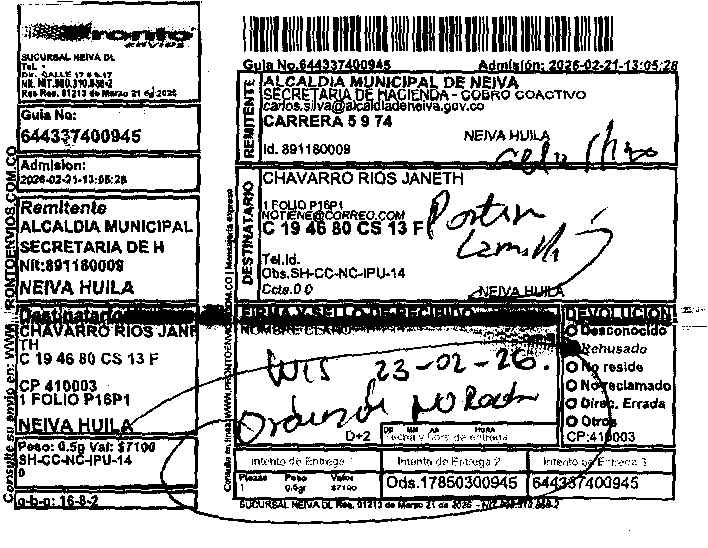 Pronto
envios
SUCURSAL NEIVA DL
Tel. *
Dir. CALLE 17 # 6-17
Nit. NIT.900.310.856-2
Res Res. 01213 de Marzo 21 de 2026
Guia No:
644337400945
Admision:
2026-02-21-13:05:28
Remitente
ALCALDIA MUNICIPAL
SECRETARIA DE H
Nit:891180009
NEIVA HUILA
Destinatario
CHAVARRO RIOS JANE
TH
C 19 46 80 CS 13 F
CP 410003
1 FOLIO P16P1
NEIVA HUILA
Peso: 0.5g Val: $7100
SH-CC-NC-IPU-14
0
g-b-p: 16-8-2
Guia No.644337400945 Admisión: 2026-02-21-13:05:28
REMITENTE
ALCALDIA MUNICIPAL DE NEIVA
SECRETARIA DE HACIENDA - COBRO COACTIVO
carlos.silva@alcaldianeiva.gov.co
CARRERA 5 9 74
NEIVA HUILA
Id. 891180009
DESTINATARIO
CHAVARRO RIOS JANETH
1 FOLIO P16P1
NOTIENE@CORREO.COM
C 19 46 80 CS 13 F
Tel.Id.
Obs.SH-CC-NC-IPU-14
Ccts.0 0
NEIVA HUILA
FIRMA Y SELLO DE RECIBIDO
NOMBRE CLARO
23-02-26.
D+2
DD MM AA HORA
Fecha y Hora de entrega
DEVOLUCION
Desconocido
Rehusado
No reside
No reclamado
Direc. Errada
Otros
CP:410003
Intento de Entrega 1 Intento de Entrega 2 Intento de Entrega 3
Piezas Peso Valor
1 0.5gr $7100
Ods.17850300945
644337400945
SUCURSAL NEIVA DL Res. 01213 de Marzo 21 de 2026